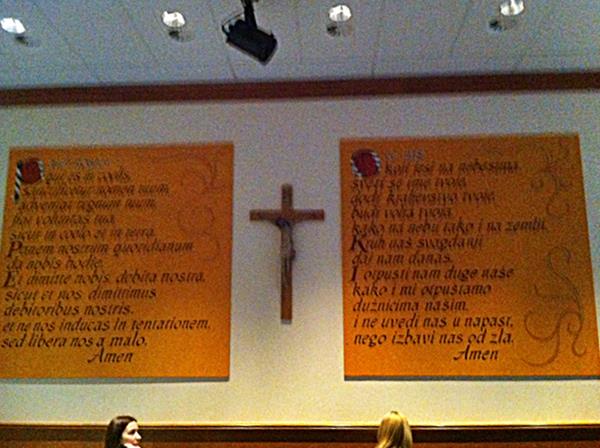 qui es in coelis,
sanctificetur nomen tuum,
adveniat regnum tuum,
fiat voluntas tua,
sicut in coelo et in terra.
Panem nostrum quotidianum
da nobis hodie.
Et dimitte nobis debita nostra,
sicut et nos dimittimus
debitoribus nostris.
et ne nos inducas in tentationem,
sed libera nos a malo.
Amen
koji jesi na nebesima
sveti se ime tvoje,
dođi kraljevstvo tvoje,
budi volja tvoja,
kako na nebu tako i na zemlji.
Kruh naš svagdanji
daj nam danas.
I otpusti nam duge naše
kako i mi otpuštamo
dužnicima našim,
i ne uvedi nas u napast,
nego izbavi nas od zla.
Amen